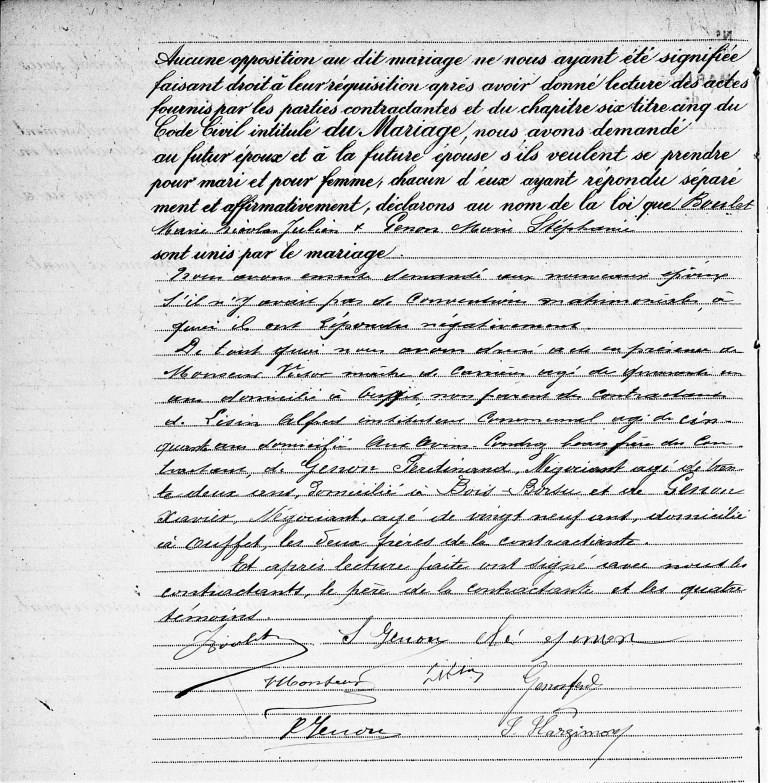 Aucune opposition au dit mariage ne nous ayant été signifiée
faisant droit à leur réquisition après avoir donné lecture des actes
fournis par les parties contractantes et du chapitre six titre cinq du
Code Civil intitulé du Mariage, nous avons demandé
au futur époux et à la future épouse s'ils veulent se prendre
pour mari et pour femme, chacun d'eux ayant répondu séparé
ment et affirmativement, déclarons au nom de la loi que
Marie Nicolas Julien & Genon Marie Stéphanie
sont unis par le mariage.
Nous avons ensuite demandé aux nouveaux époux
s'il n'y avait pas de Conventions matrimoniales, à
quoi ils ont répondu négativement.
De tout quoi nous avons dressé acte en présence de
Monseur Victor maître de carrière agé de quarante un
ans domicilié à Ouffet, non parent des contractants
de Lisin Alfred instituteur Communal agé de cin
quante ans domicilié Aux Avins Condroz beau frère du Con
tractant, de Genon Ferdinand, Négociant agé de tren
te deux ans, domicilié à Bois Borsu et de Genon
Xavier, Négociant, agé de vingt neuf ans, domicilié
à Ouffet, les deux frères de la contractante.
Et après lecture faite ont signé avec nous les
contractants, le père de la contractante et les quatre
témoins.
S Genon
Monseur Lisin Genon ferd
X Genon